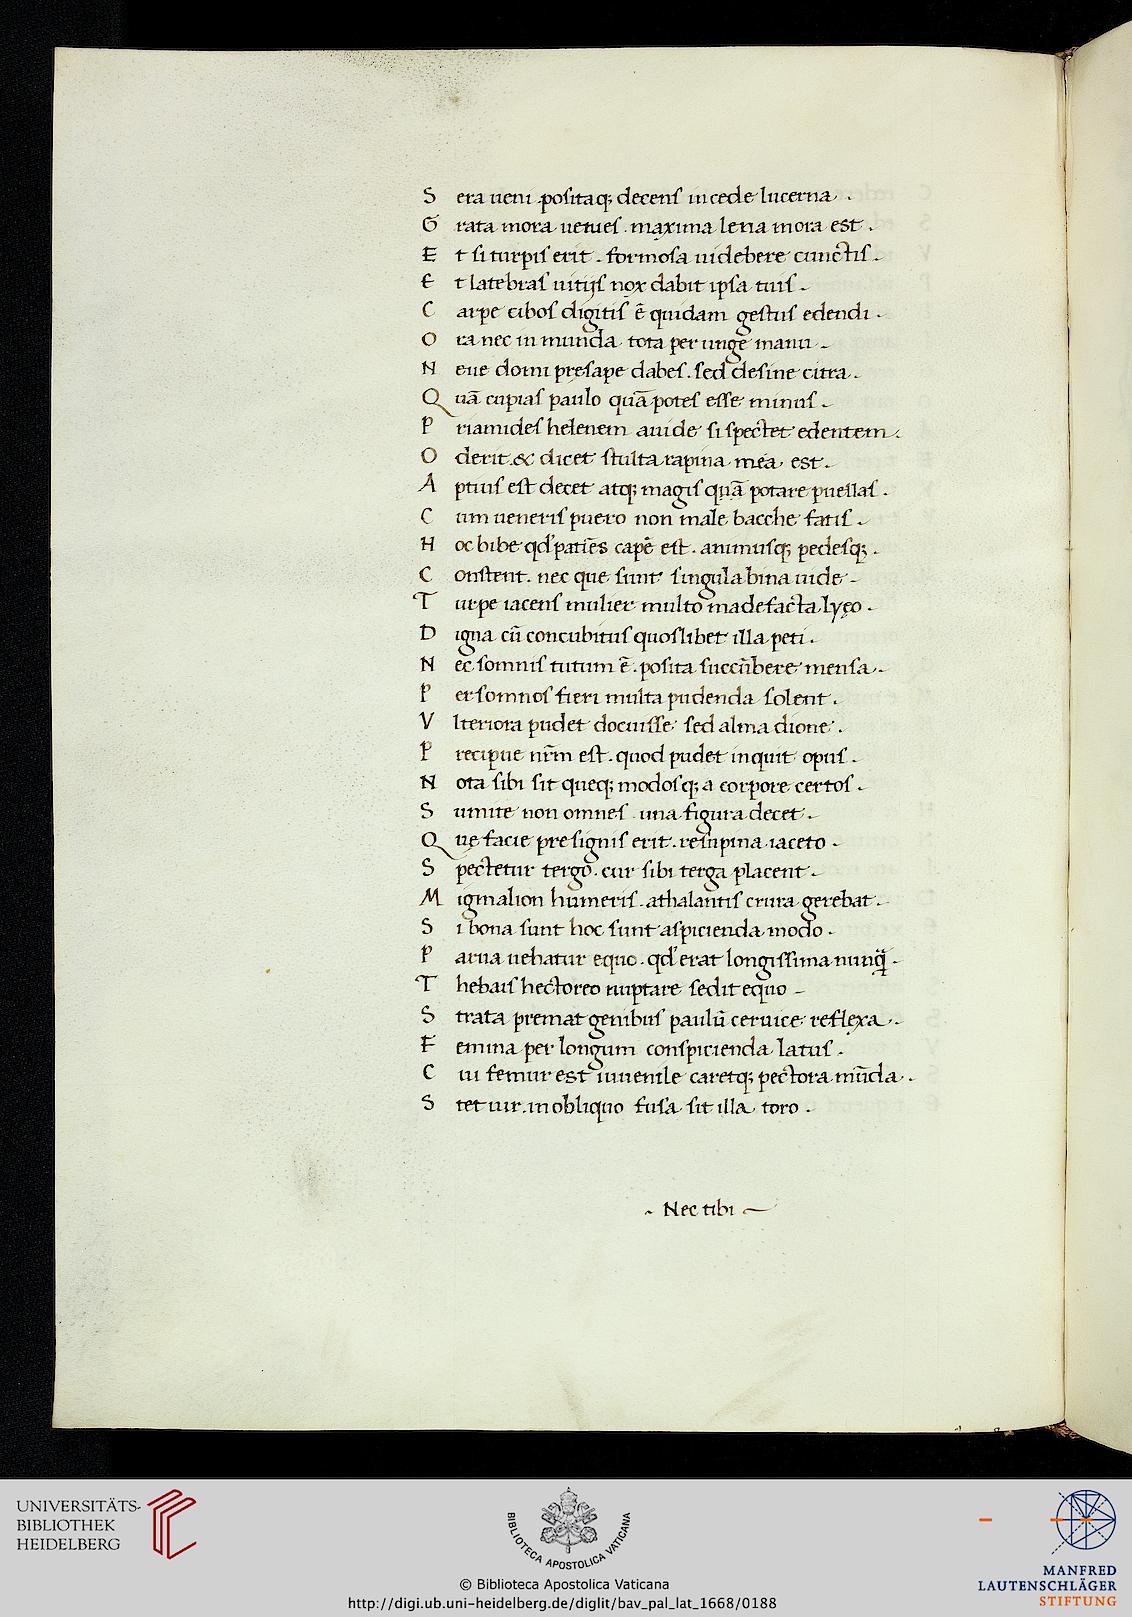 S era ueni positaq; decens incede lucerna .
G rata mora uenies . maxima lena mora est .
E t si turpis erit . formosa uidebere cunctis .
E t latebras uitijs nox dabit ipsa tuis .
C arpe cibos digitis ē quidam gestus edendi .
O ra nec in munda tota per unge manu .
N eue domi presape dabes . sed desine citra .
Q uā cupias paulo quā potes esse minus .
P riamides helenem auide si spectet edentem .
O derit & dicet stulta rapina mea est .
A ptius est decet atq; magis quā potare puellas .
C um ueneris puero non male bacche fatis .
H oc bibe qd' patiēs capē est . animusq; pedesq; .
C onstent . nec que sunt singula bina uide .
T urpe iacens mulier multo madefacta lyęo .
D igna cū concubitus quoslibet illa peti .
N ec somnis tutum ē . posita succūbere mensa .
P er somnos fieri multa pudenda solent .
V lteriora pudet docuisse sed alma dione .
P recipue nr̄m est . quod pudet inquit opus .
N ota sibi sit queq; modosq; a corpore certos .
S umite non omnes una figura decet .
Q uę facie presignis erit . resupina iaceto .
S pectetur tergo . cur sibi terga placent .
M igmalion humeris . athalantis crura gerebat .
S i bona sunt hoc sunt aspicienda modo .
P arua uehatur equo . qd' erat longissima nunq̄ .
T hebais hectoreo nuptare sedit equo
S trata premat genibus paulū ceruice reflexa .
F emina per longum conspicienda latus .
C ui femur est iuuenile caretq; pectora mūda .
S tet uir . in obliquo fusa sit illa toro .
Nec tibi
UNIVERSITÄTS-
BIBLIOTHEK
HEIDELBERG
BIBLIOTECA APOSTOLICA VATICANA
© Biblioteca Apostolica Vaticana
http://digi.ub.uni-heidelberg.de/diglit/bav_pal_lat_1668/0188
MANFRED
LAUTENSCHLÄGER
STIFTUNG